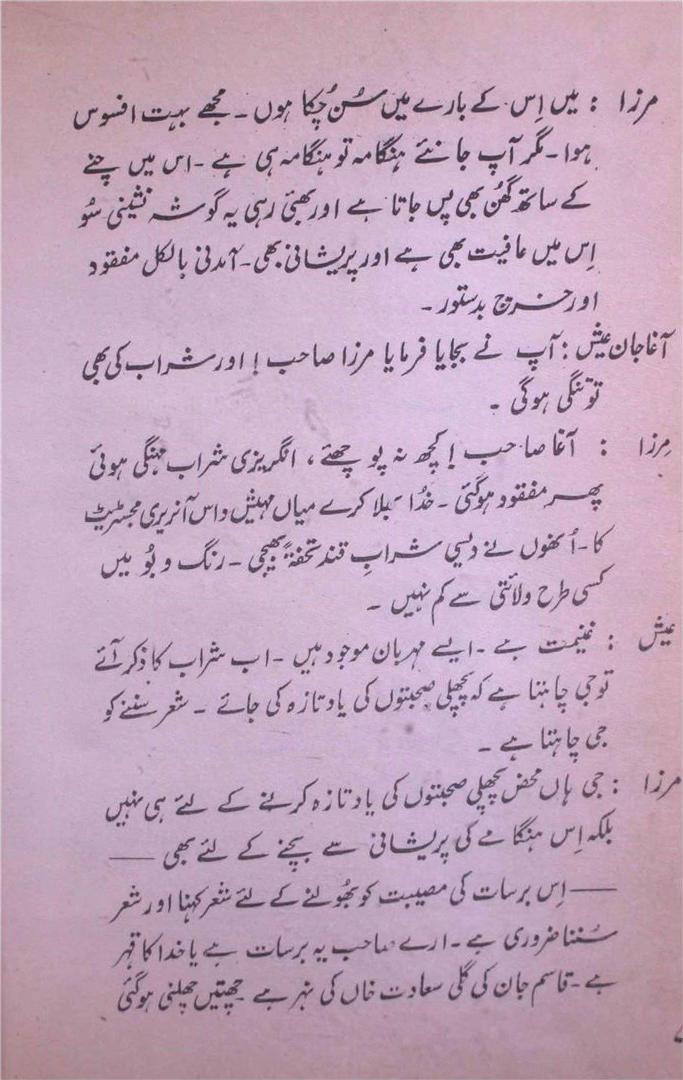 مرزا : میں اِس کے بارے میں سُن چُکا ہوں ۔ مجھے بہت افسوس
ہوا ۔ مگر آپ جانئے ہنگامہ تو ہنگامہ ہی ہے ۔ اس میں چنے
کے ساتھ گھُن بھی پس جاتا ہے اور بھئی رہی یہ گوشہ نشینی سُو
اِس میں عافیت بھی ہے اور پریشانی بھی ۔ آمدنی بالکل مفقود
اور خرچ بدستور ۔
آغا جان عیش : آپ نے بجایا فرمایا مرزا صاحب ! اور شراب کی بھی
تو تنگی ہوگی ۔
مرزا : آغا صاحب ! کچھ نہ پوچھئے ، انگریزی شراب مہنگی ہوئی
پھر مفقود ہوگئی ۔ خُدا بھلا کرے میاں مہیش داس آنریری مجسٹریٹ
کا ۔ اُنھوں نے دیسی شرابِ قند تحفۃً بھیجی ۔ رنگ و بُو میں
کسی طرح ولائتی سے کم نہیں ۔
عیش : غنیمت ہے ۔ ایسے مہربان موجود ہیں ۔ اب شراب کا ذکر آئے
تو جی چاہتا ہے کہ پچھلی صحبتوں کی یاد تازہ کی جائے ۔ شعر سننے کو
جی چاہتا ہے ۔
مرزا : جی ہاں محض پچھلی صحبتوں کی یاد تازہ کرنے کے لئے ہی نہیں
بلکہ اِس ہنگامے کی پریشانی سے بچنے کے لئے بھی ——
—— اِس برسات کی مصیبت کو بھُولنے کے لئے شعر کہنا اور شعر
سُننا ضروری ہے ۔ ارے صاحب یہ برسات ہے یا خدا کا قہر
ہے ۔ قاسم جان کی گلی سعادت خاں کی نہر ہے چھتیں چھلنی ہوگئی